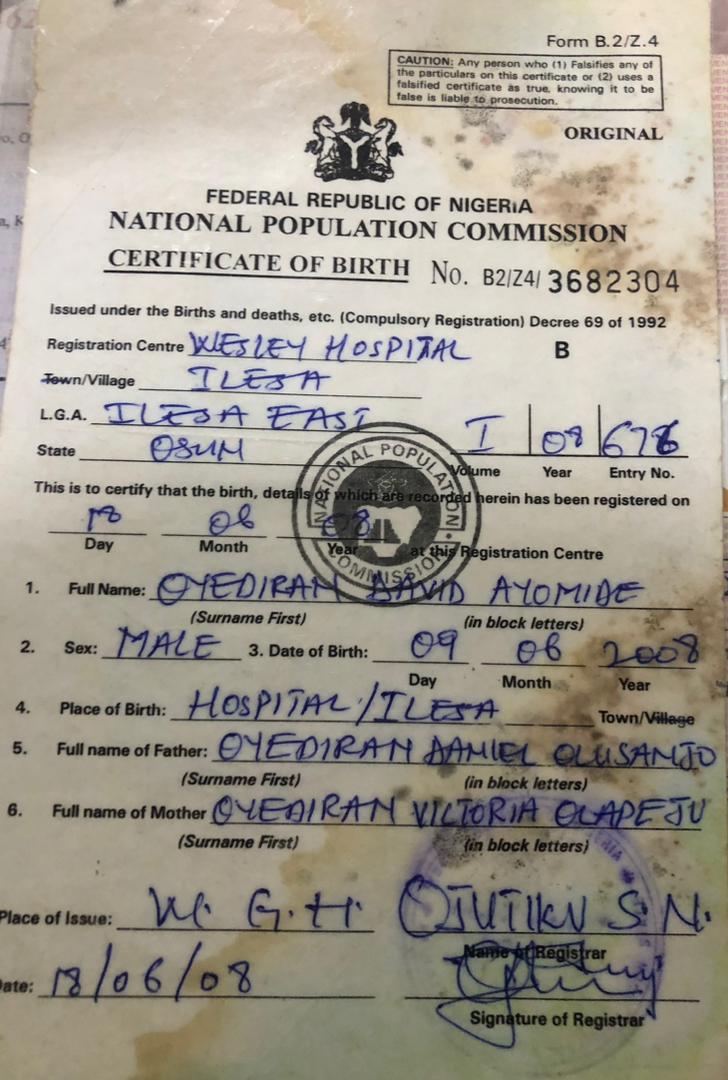 Form B.2/Z.4
CAUTION: Any person who (1) Falsifies any of
the particulars on this certificate or (2) uses a
falsified certificate as true, knowing it to be
false is liable to prosecution.
ORIGINAL
FEDERAL REPUBLIC OF NIGERIA
NATIONAL POPULATION COMMISSION
CERTIFICATE OF BIRTH No. B2/Z4/ 3682304
Issued under the Births and deaths, etc. (Compulsory Registration) Decree 69 of 1992
Registration Centre WESLEY HOSPITAL B
Town/Village ILESA
L.G.A. ILESA EAST I 08 676
State OSUN Volume Year Entry No.
NATIONAL POPULATION COMMISSION
This is to certify that the birth, details of which are recorded herein has been registered on
18 06 08
Day Month Year at this Registration Centre
1. Full Name: OYEDIRAN DAVID AYOMIDE
(Surname First) (in block letters)
2. Sex: MALE 3. Date of Birth: 09 06 2008
Day Month Year
4. Place of Birth: HOSPITAL/ILESA Town/Village
5. Full name of Father: OYEDIRAN DANIEL OLUSANJO
(Surname First) (in block letters)
6. Full name of Mother OYEDIRAN VICTORIA OLAPEJU
(Surname First) (in block letters)
Place of Issue: W. G. H. OJUTIKU S. N.
Name of Registrar
Date: 18/06/08
Signature of Registrar